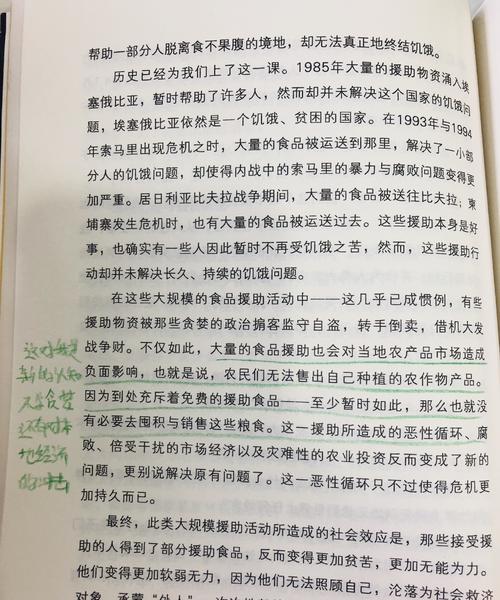 帮助一部分人脱离食不果腹的境地，却无法真正地终结饥饿。
历史已经为我们上了这一课。1985年大量的援助物资涌入埃
塞俄比亚，暂时帮助了许多人，然而却并未解决这个国家的饥饿问
题，埃塞俄比亚依然是一个饥饿、贫困的国家。在1993年与1994
年索马里出现危机之时，大量的食品被运送到那里，解决了一小部
分人的饥饿问题，却使得内战中的索马里的暴力与腐败问题变得更
加严重。居日利亚比夫拉战争期间，大量的食品被送往比夫拉；柬
埔寨发生危机时，也有大量的食品被运送过去。这些援助本身是好
事，也确实有一些人因此暂时不再受饥饿之苦，然而，这些援助行
动却并未解决长久、持续的饥饿问题。
在这些大规模的食品援助活动中——这几乎已成惯例，有些
援助物资被那些贪婪的政治掮客监守自盗，转手倒卖，借机大发
战争财。不仅如此，大量的食品援助也会对当地农产品市场造成
负面影响，也就是说，农民们无法售出自己种植的农作物产品。
因为到处充斥着免费的援助食品——至少暂时如此，那么也就没
有必要去囤积与销售这些粮食。这一援助所造成的恶性循环、腐
败、倍受干扰的市场经济以及灾难性的农业投资反而变成了新的
问题，更别说解决原有问题了。这一恶性循环只不过使得危机更
加持久而已。
最终，此类大规模援助活动所造成的社会效应是，那些接受援
助的人得到了部分援助食品，反而变得更加贫苦，更加无能为力。
他们变得更加软弱无力，因为他们无法照顾自己，沦落为社会救济
对象，承蒙“外人”一次次
新的认知
还有对本
地经济
的冲击